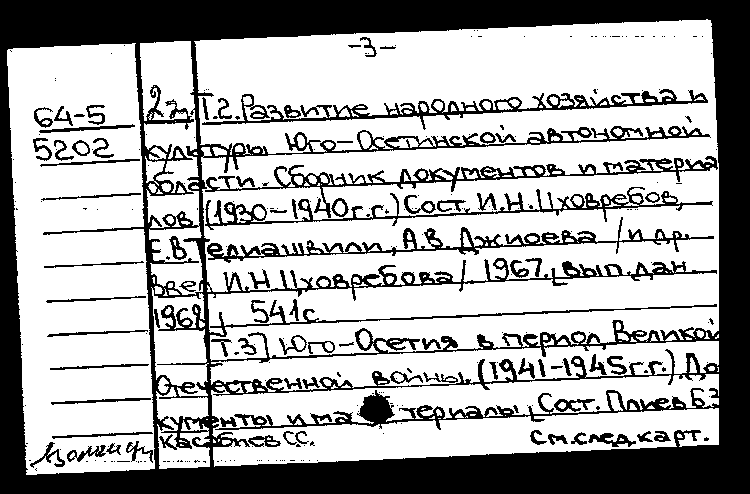 -3-
64-5
5202
2д. Т.2. Развитие народного хозяйства и
культуры Юго-Осетинской автономной
области. Сборник документов и материа
лов (1930-1940г.г.) Сост. И.Н. Цховребов,
Е.В. Телиашвили, А.В. Джиоева /и др.
Введ. И.Н Цховребова/. 1967. [вып. дан.
1968] 541с.
[Т.3] Юго-Осетия в период Великой
Отечественной войны. (1941-1945г.г.) До
кументы и материалы, [Сост. Плиев Б.З
Касабиев С.С.
См.след.карт.